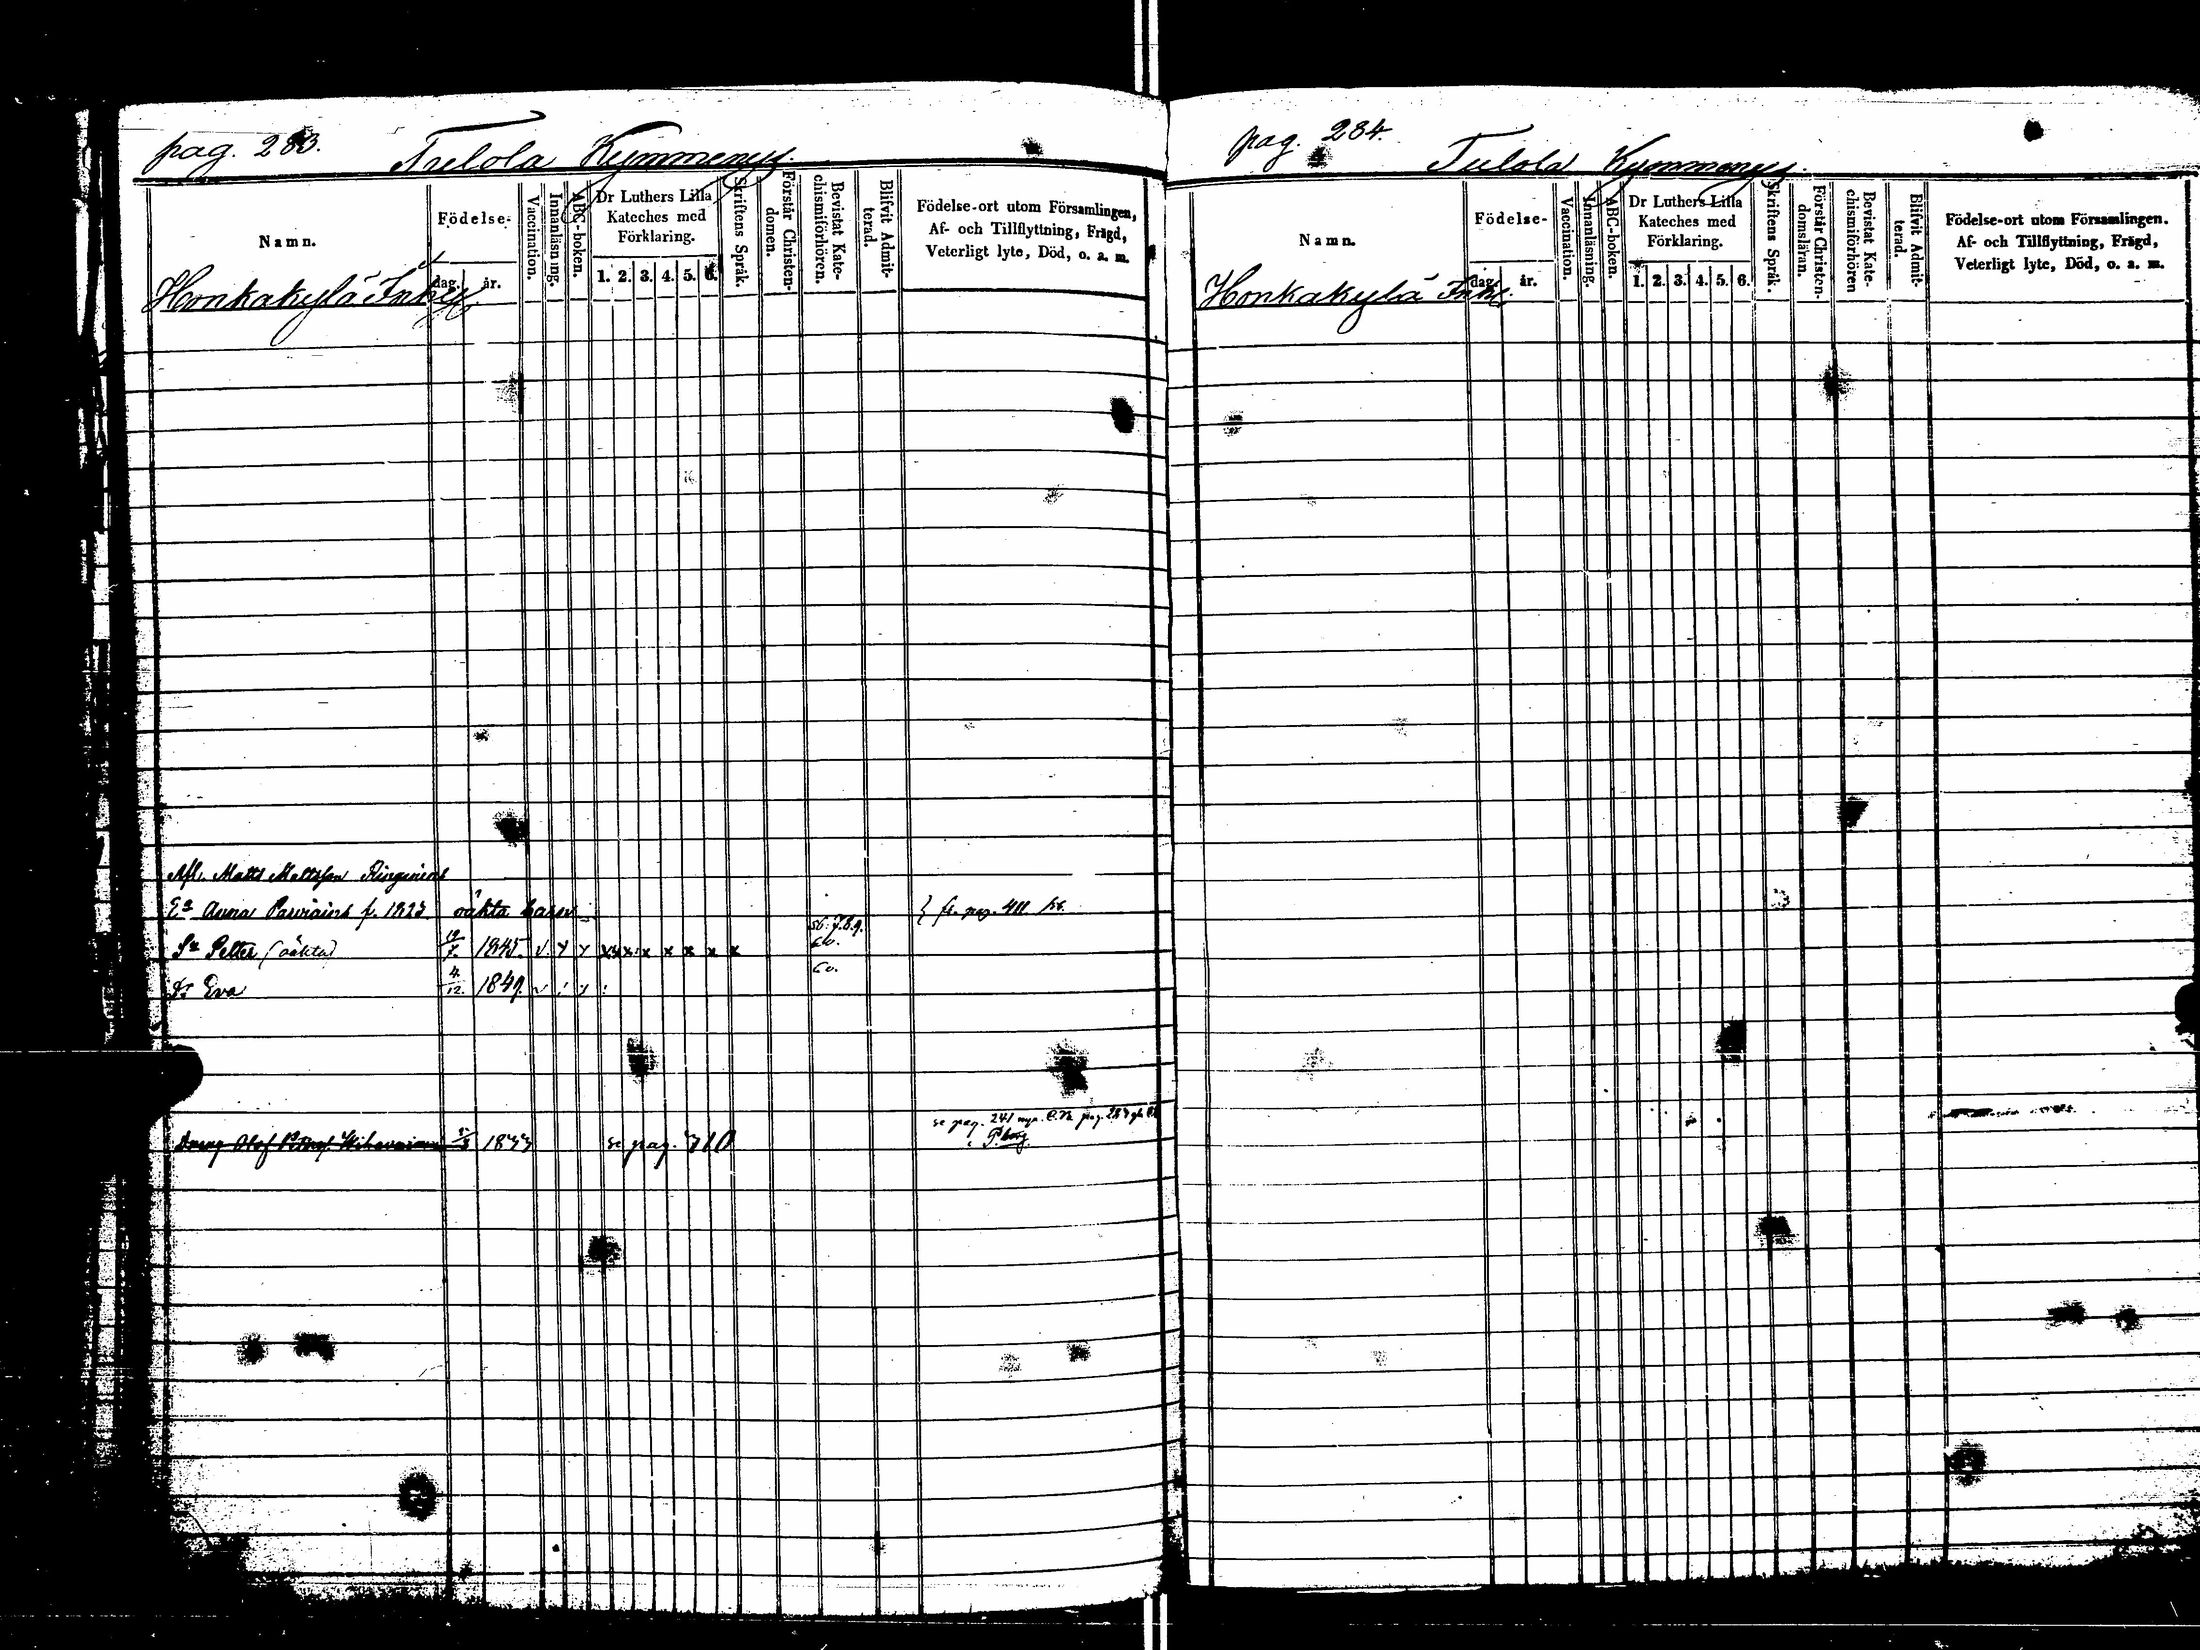 pag. 283. Tulola Kymmenys.
Namn. Födelse- dag. år. Vaccination. Innanläsning. ABC-boken. Dr Luthers Lilla Kateches med Förklaring. 1. 2. 3. 4. 5. 6. Skriftens Språk. Förstår Christendomen. Bevistat Katechismiförhören. Blifvit Admitterad. Födelse-ort utom Församlingen, Af- och Tillflyttning, Frägd, Veterligt lyte, Död, o. a. m.
Honkakylä Inhys.
Afl. Matts Mattsson
Ea Anna f. 1823 oäkta barn fr. pag. 411
Sn Petter (oäkta) 19/7. 1845. 56. 7. 8. 9. 60.
Dr Eva 4/12. 1849. 60.
Dreng Olof 1833 se pag. 710 se pag. 241
pag. 284. Tulola Kymmenys.
Namn. Födelse- dag. år. Vaccination. Innanläsning. ABC-boken. Dr Luthers Lilla Kateches med Förklaring. 1. 2. 3. 4. 5. 6. Skriftens Språk. Förstår Christendomsläran. Bevistat Katechismiförhören Blifvit Admitterad. Födelse-ort utom Församlingen. Af- och Tillflyttning, Frägd, Veterligt lyte, Död, o. a. m.
Honkakylä Inhs.